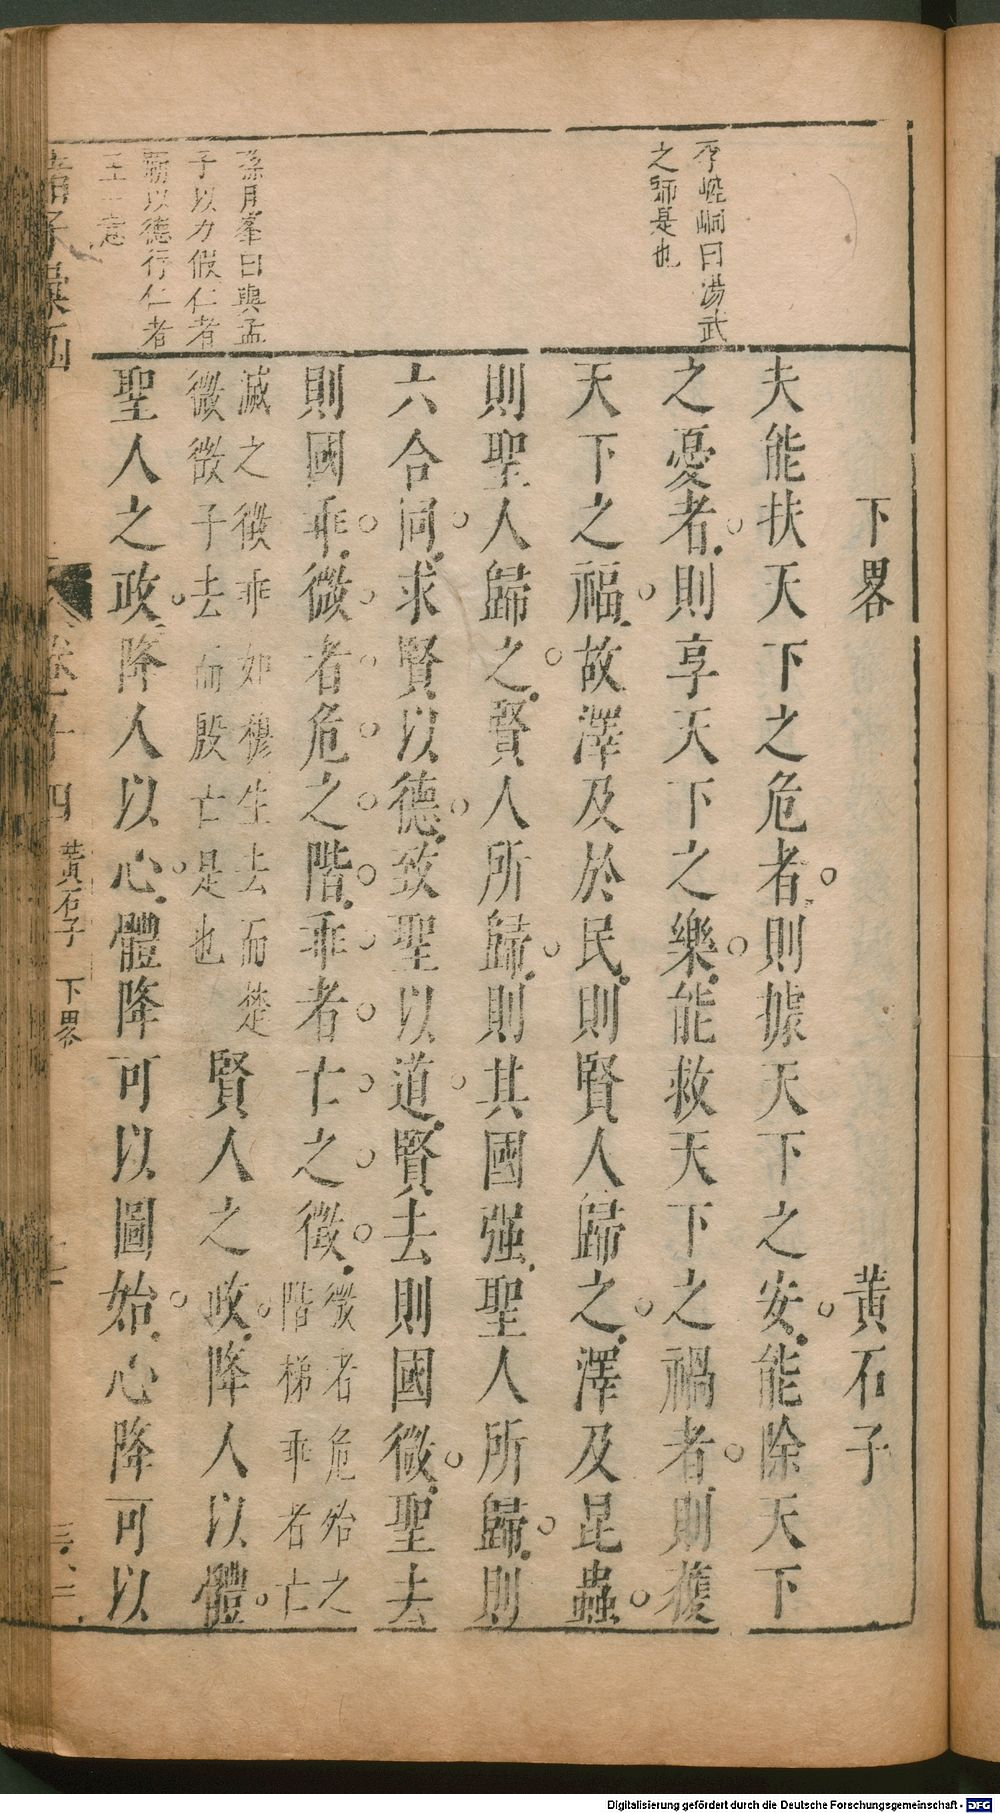 李崆峒曰湯武
之師是也
孫月峯曰與孟
子以力假仁者
霸以德行仁者
王一意
下畧
黃石子
夫能扶天下之危者則據天下之安能除天下
之憂者則享天下之樂能救天下之禍者則獲
天下之福故澤及於民則賢人歸之澤及昆蟲
則聖人歸之賢人所歸則其國强聖人所歸則
六合同求賢以德致聖以道賢去則國微聖去
則國乖微者危之階乖者亡之徵
微者危殆之
階梯乖者亡
滅之徵乖如穆生去而楚
微微子去而殷亡是也
賢人之政降人以體
聖人之政降人以心體降可以圖始心降可以
卷二十四
黃石子
下畧
Digitalisierung gefördert durch die Deutsche Forschungsgemeinschaft - DFG